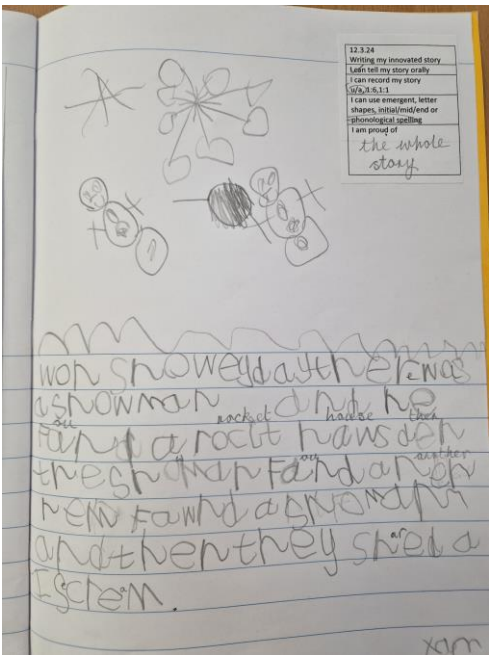 12.3.24
Writing my innovated story
I can tell my story orally
I can record my story
w/a, 1:6,1:1
I can use emergent, letter
shapes, initial/mid/end or
phonological spelling
I am proud of
the whole
story
won snoweyday there was
a snowman and he
ou rocket house then
fand a roctt hawsden
ou another
the snoman fand anen
fawnd a snomann
ar
and then they shed a
a
Iscrem.